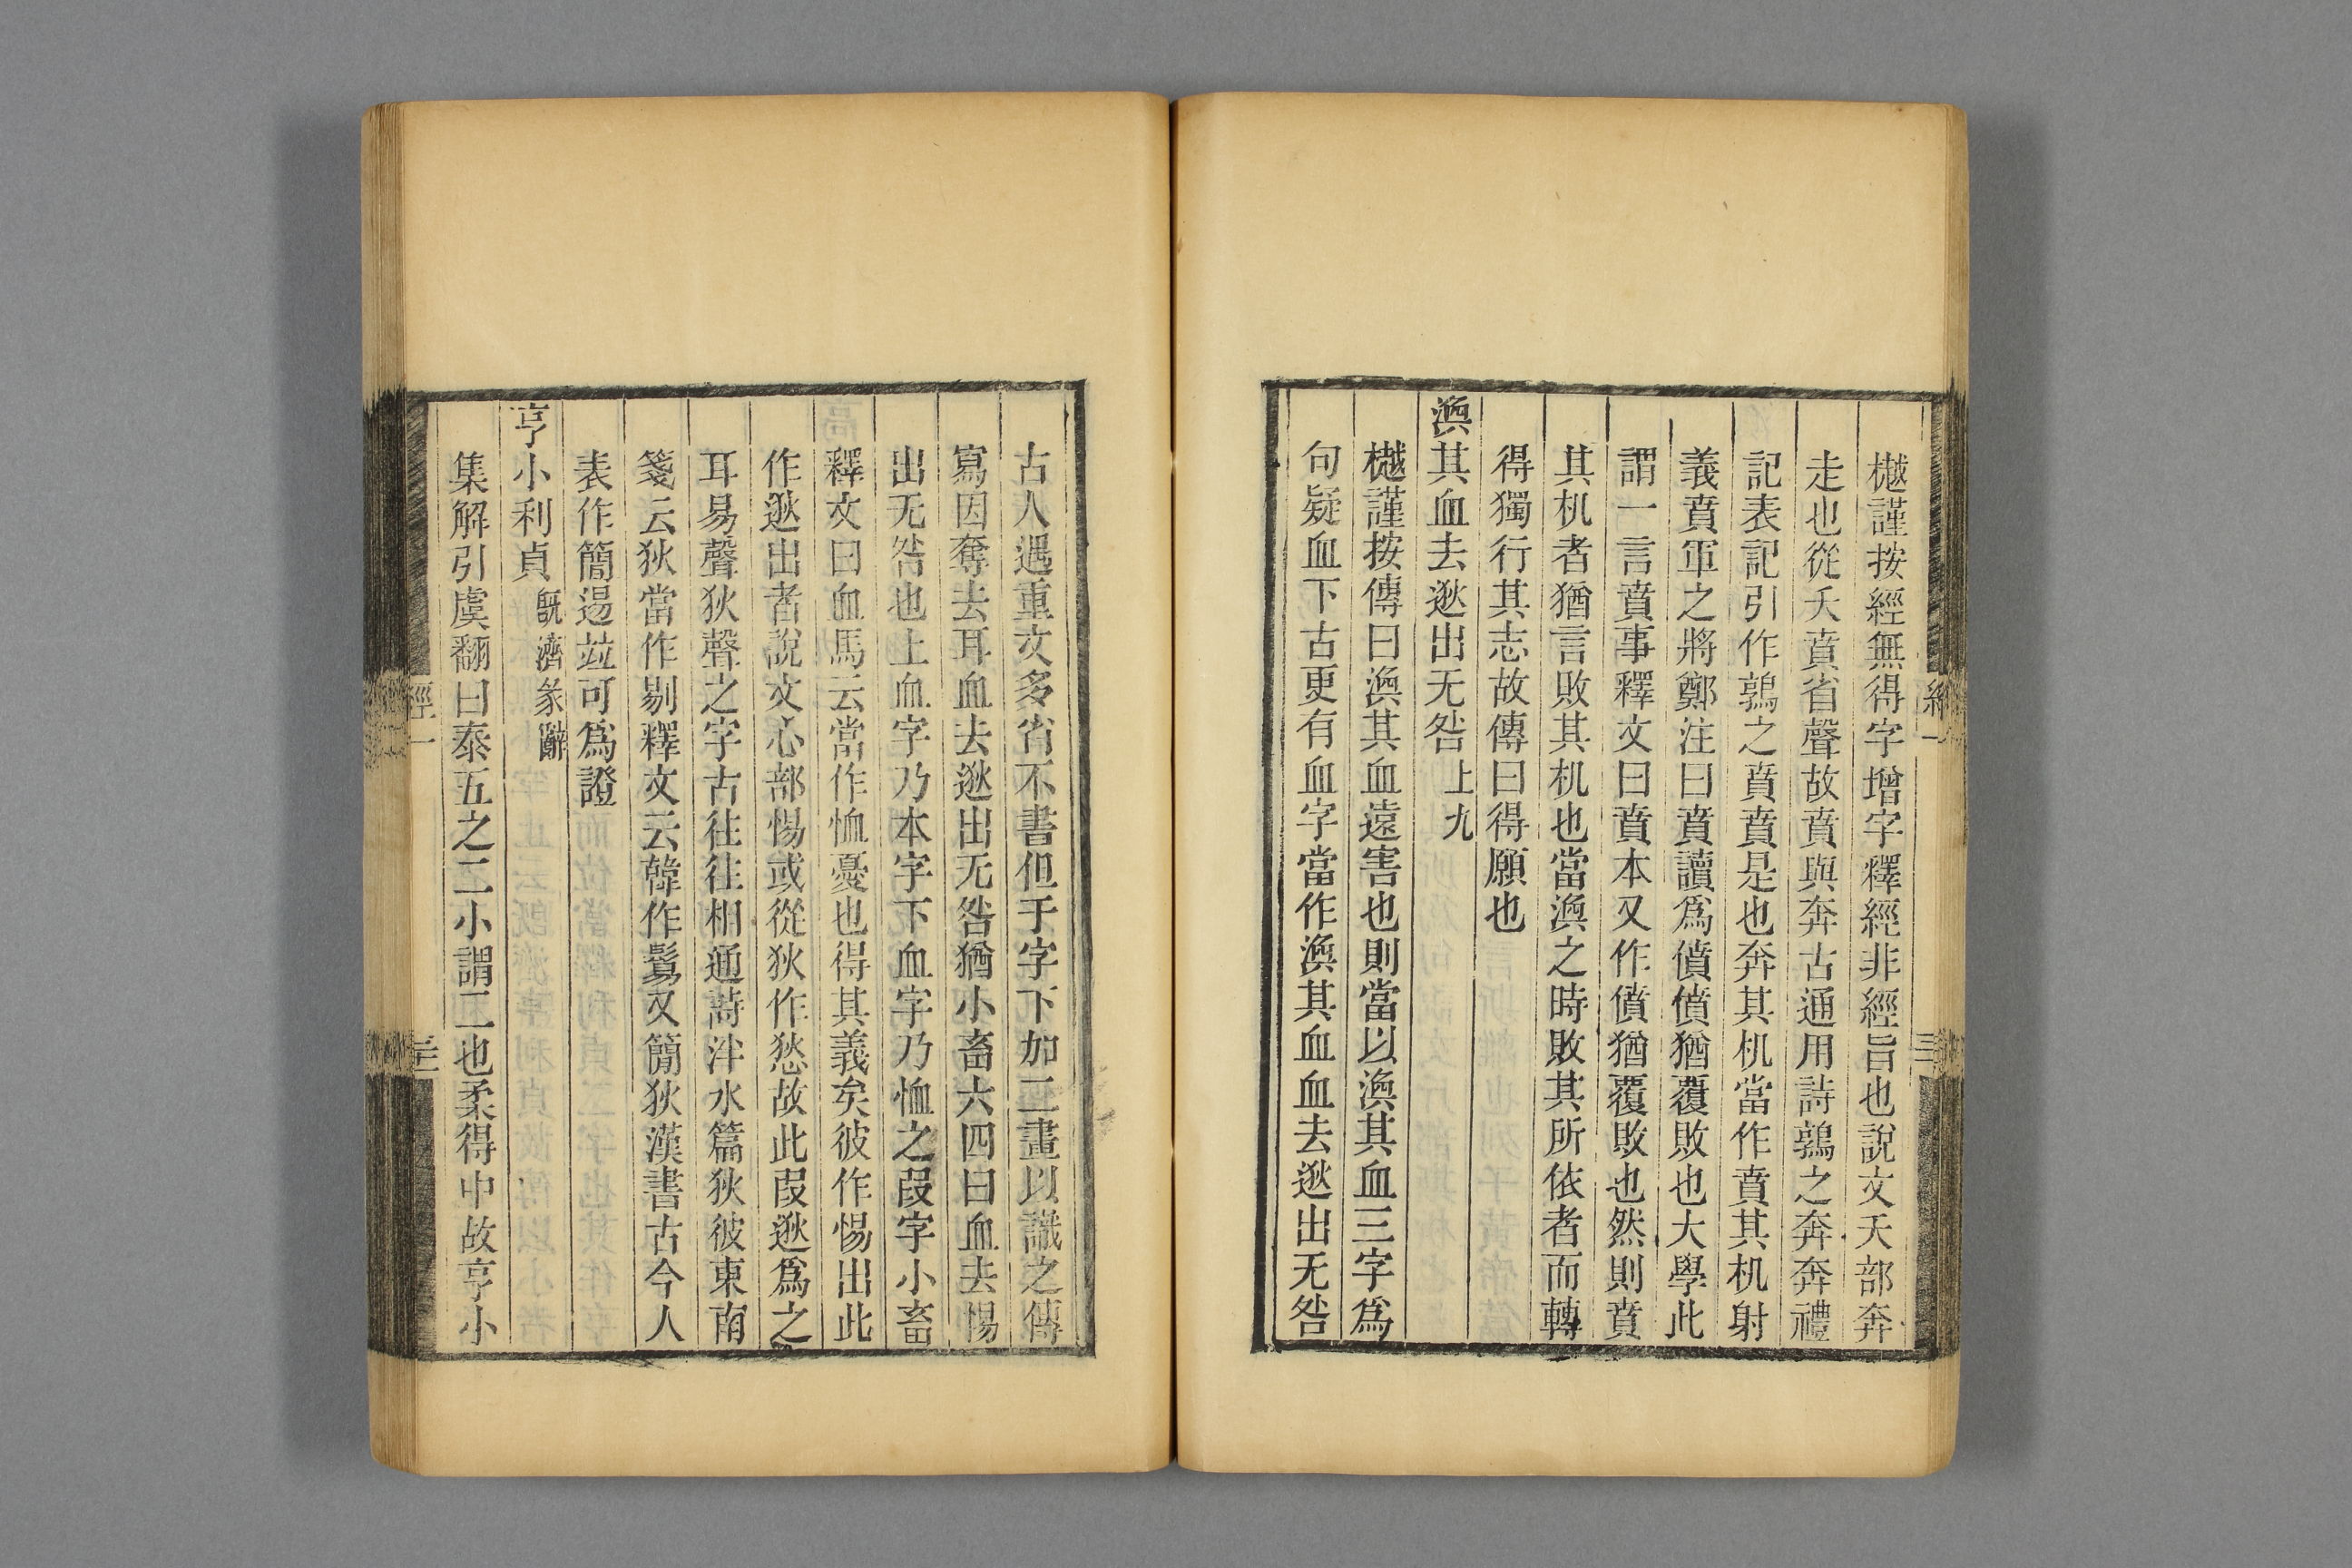 樾謹按經無得字增字釋經非經旨也說文夭部奔
走也從夭賁省聲故賁與奔古通用詩鶉之奔奔禮
記表記引作鶉之賁賁是也奔其机當作賁其机射
義賁軍之將鄭注曰賁讀爲僨僨猶覆敗也大學此
謂一言賁事釋文曰賁本又作僨猶覆敗也然則賁
其机者猶言敗其机也當渙之時敗其所依者而轉
得獨行其志故傳曰得願也
渙其血去逖出无咎上九
樾謹按傳曰渙其血遠害也則當以渙其血三字爲
句疑血下古更有血字當作渙其血血去逖出无咎
古人遇重文多省不書但于字下加二畫以識之傳
寫因奪去耳血去逖出无咎猶小畜六四曰血去惕
出无咎也上血字乃本字下血字乃恤之叚字小畜
釋文曰血馬云當作恤憂也得其義矣彼作惕出此
作逖出者說文心部惕或從狄作悐故此叚逖爲之
耳易聲狄聲之字古往往相通詩泮水篇狄彼東南
箋云狄當作剔釋文云韓作鬄又簡狄漢書古今人
表作簡逷竝可爲證
亨小利貞旣濟彖辭
集解引虞翻曰泰五之二小謂二也柔得中故亨小
經一